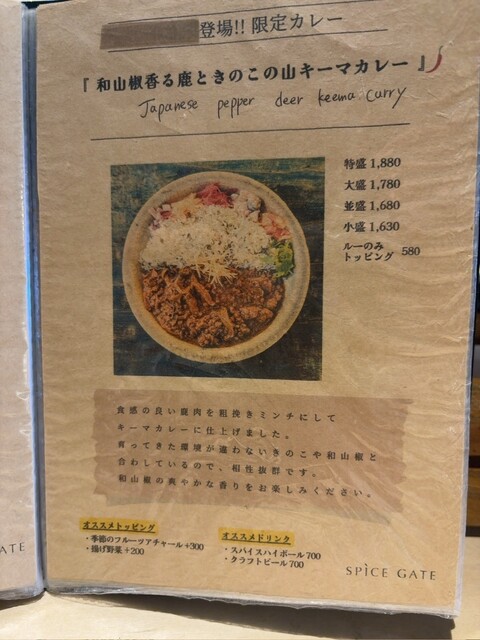 登場!! 限定カレー
『和山椒香る鹿ときのこの山キーマカレー』
Japanese pepper deer keema curry
特盛 1,880
大盛 1,780
並盛 1,680
小盛 1,630
ルーのみ
トッピング 580
食感の良い鹿肉を粗挽きミンチにして
キーマカレーに仕上げました。
育ってきた環境が違わないきのこや和山椒と
合わしているので、相性抜群です。
和山椒の爽やかな香りをお楽しみください。
オススメトッピング
・季節のフルーツアチャール+300
・揚げ野菜+200
オススメドリンク
・スパイスハイボール700
・クラフトビール700
SPICE GATE
ATE